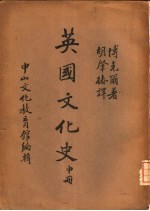 博克爾著
胡肇椿譯
英國文化史中冊
中山文化教育館編輯